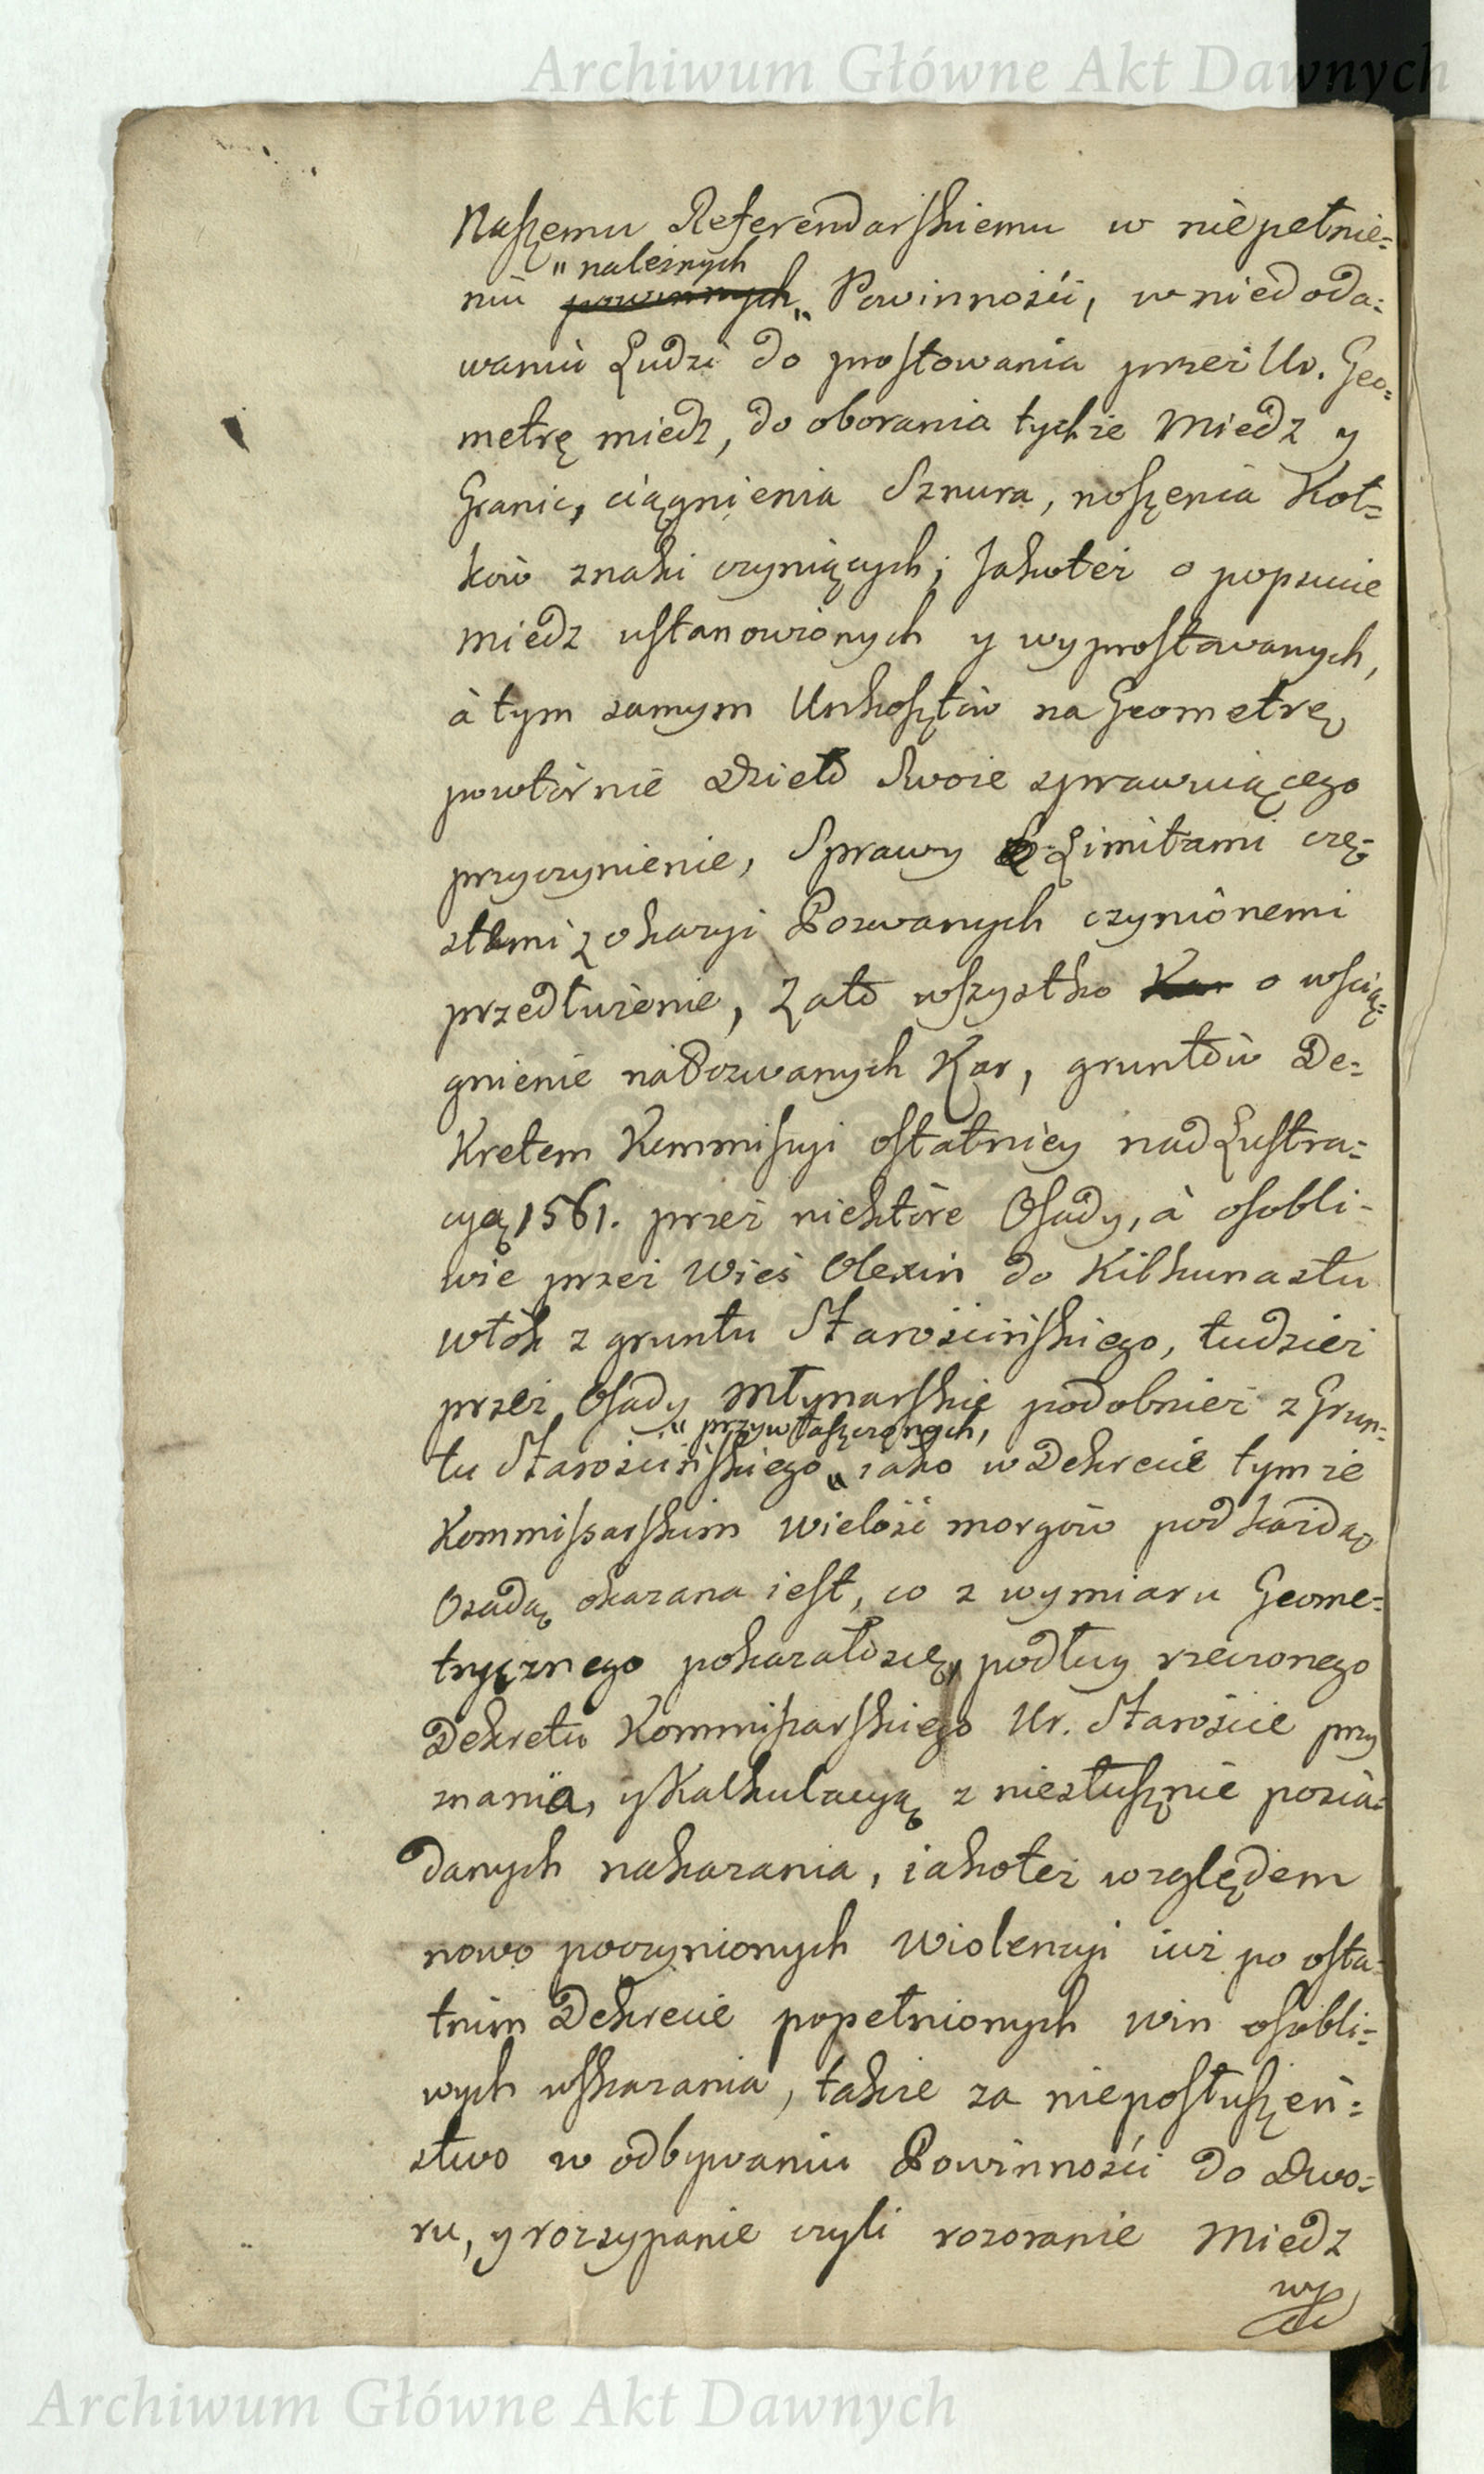 Archiwum Główne Akt Dawnych
Naszemu Referendarskiemu w niepełnie=
" należnych
niu powinnych „ Powinności, w niedoda=
waniu Ludzi do prostowania przez Ur. Geo=
metrę miedz, do oborania tychże Miedz y
Granic, ciągnienia Sznura, noszenia Koł=
ków znaki czyniących; Jakoteż o popsucie
miedz ustanowionych y wyprostowanych,
à tym samym Unkosztów na Geometrę
powtórnie Dzieło Swoie sprawuiącego
przyczynienie, Sprawy Limitami czę=
stemi z okazyi Pozwanych czynionemi
przedłużenie, Zato wszystko Kar o wscią=
gnienie na Pozwanych Kar, gruntów De=
kretem Kommisyi ostatniey nad Lustra=
cyą 1561. przez niektóre Osady, à osobli=
wie przez Wieś Olexin do Kilkunastu
włók z gruntu Starościńskiego, tudzież
przez Osady Młynarskie podobnież z Grun=
" przywłaszczonych,
tu Starościńskiego „ iako w Dekrecie tymże
Kommissarskim wielość morgów pod każdą
Osadą okazana iest, co z wymiaru Geome=
trycznego pokazało się, podług rzeczonego
Dekretu Kommissarskiego Ur. Staroście przy
znania, y Kalkulacyą z niesłusznie posia=
danych nakazania, iakoteż względem
nowo poczynionych Wiolencyi iuż po osta=
tnim Dekrecie popełnionych win osobli=
wych wskazania, także za nieposłuszeń=
stwo w odbywaniu Powinności do Dwo=
ru, y rozsypanie czyli rozoranie Miedz
wy
Archiwum Główne Akt Dawnych